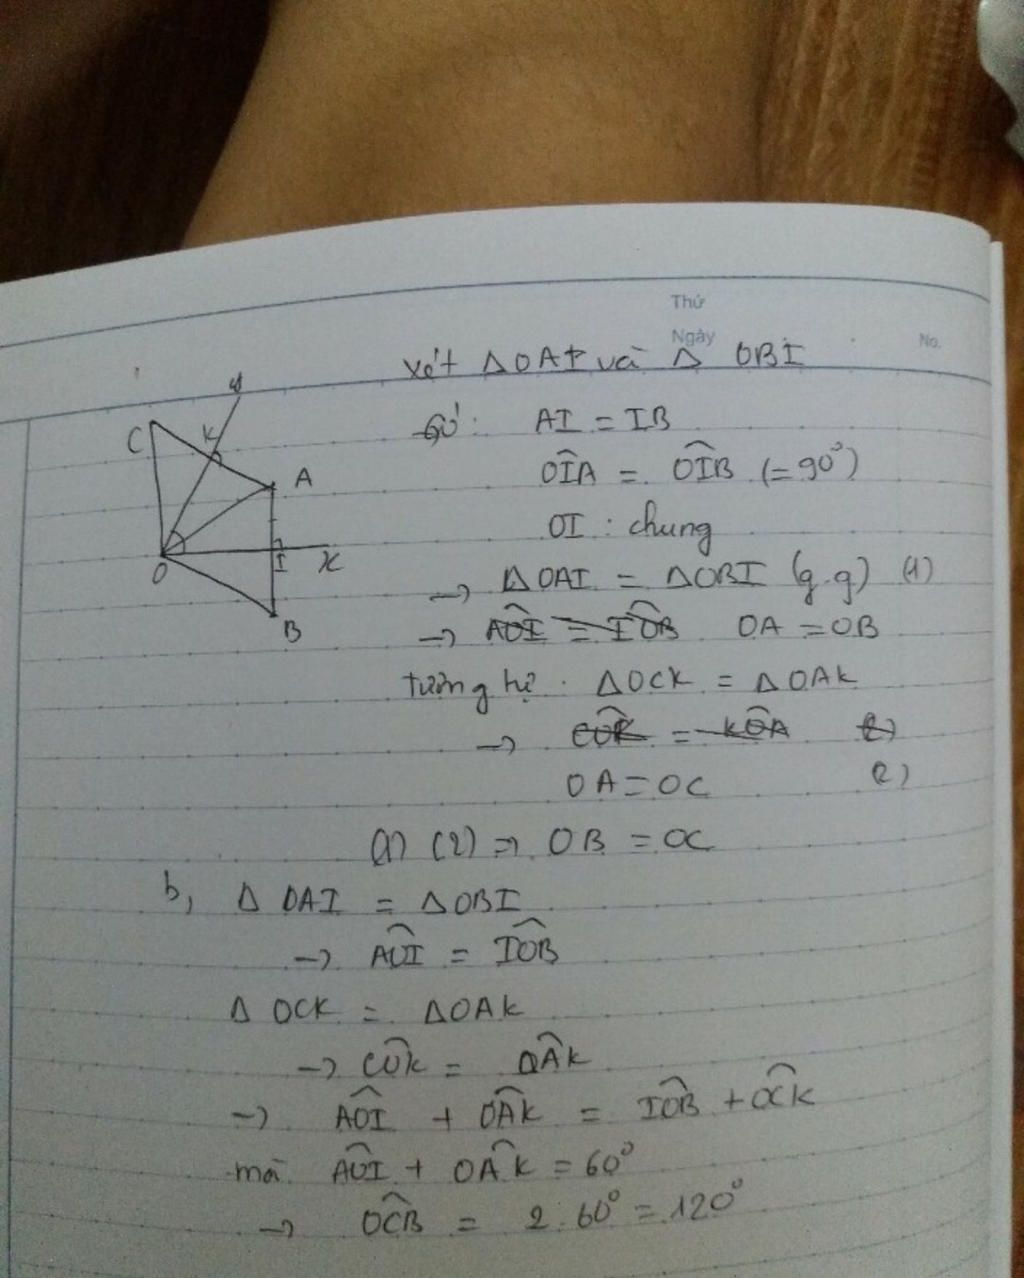 Thứ
Ngày
No.
xét △OAI và △ OBI
Có: AI = IB
OIA = OIB (=90°)
OI : chung
→ △OAI = △OBI (g.g) (1)
→ AOI = IOB OA = OB
tương tự . △OCK = △OAK
→ COK = KOA (2)
OA = OC (2)
(1) (2) => OB = OC
b, △ OAI = △OBI
→ AOI = IOB
△ OCK = △OAK
→ COK = OAK
→ AOI + OAK = IOB + OCK
mà AOI + OAK = 60°
→ OCB = 2.60° = 120°
y
C
K
A
O
I
x
B